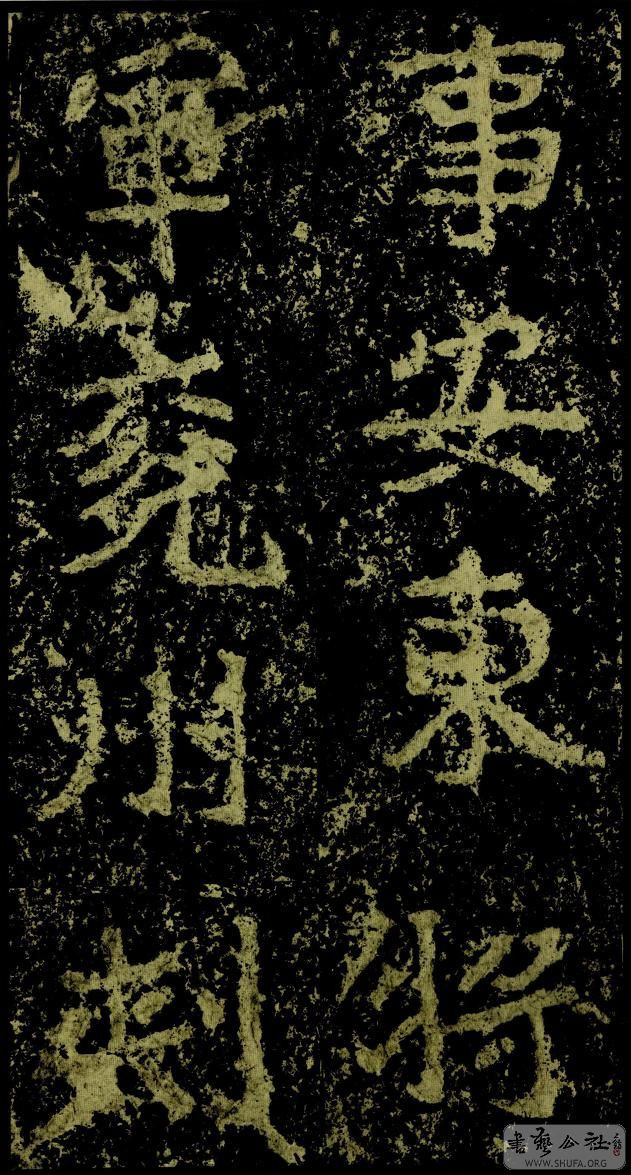 事安東將
軍兗州刺
書藝公社
WWW.SHUFA.ORG